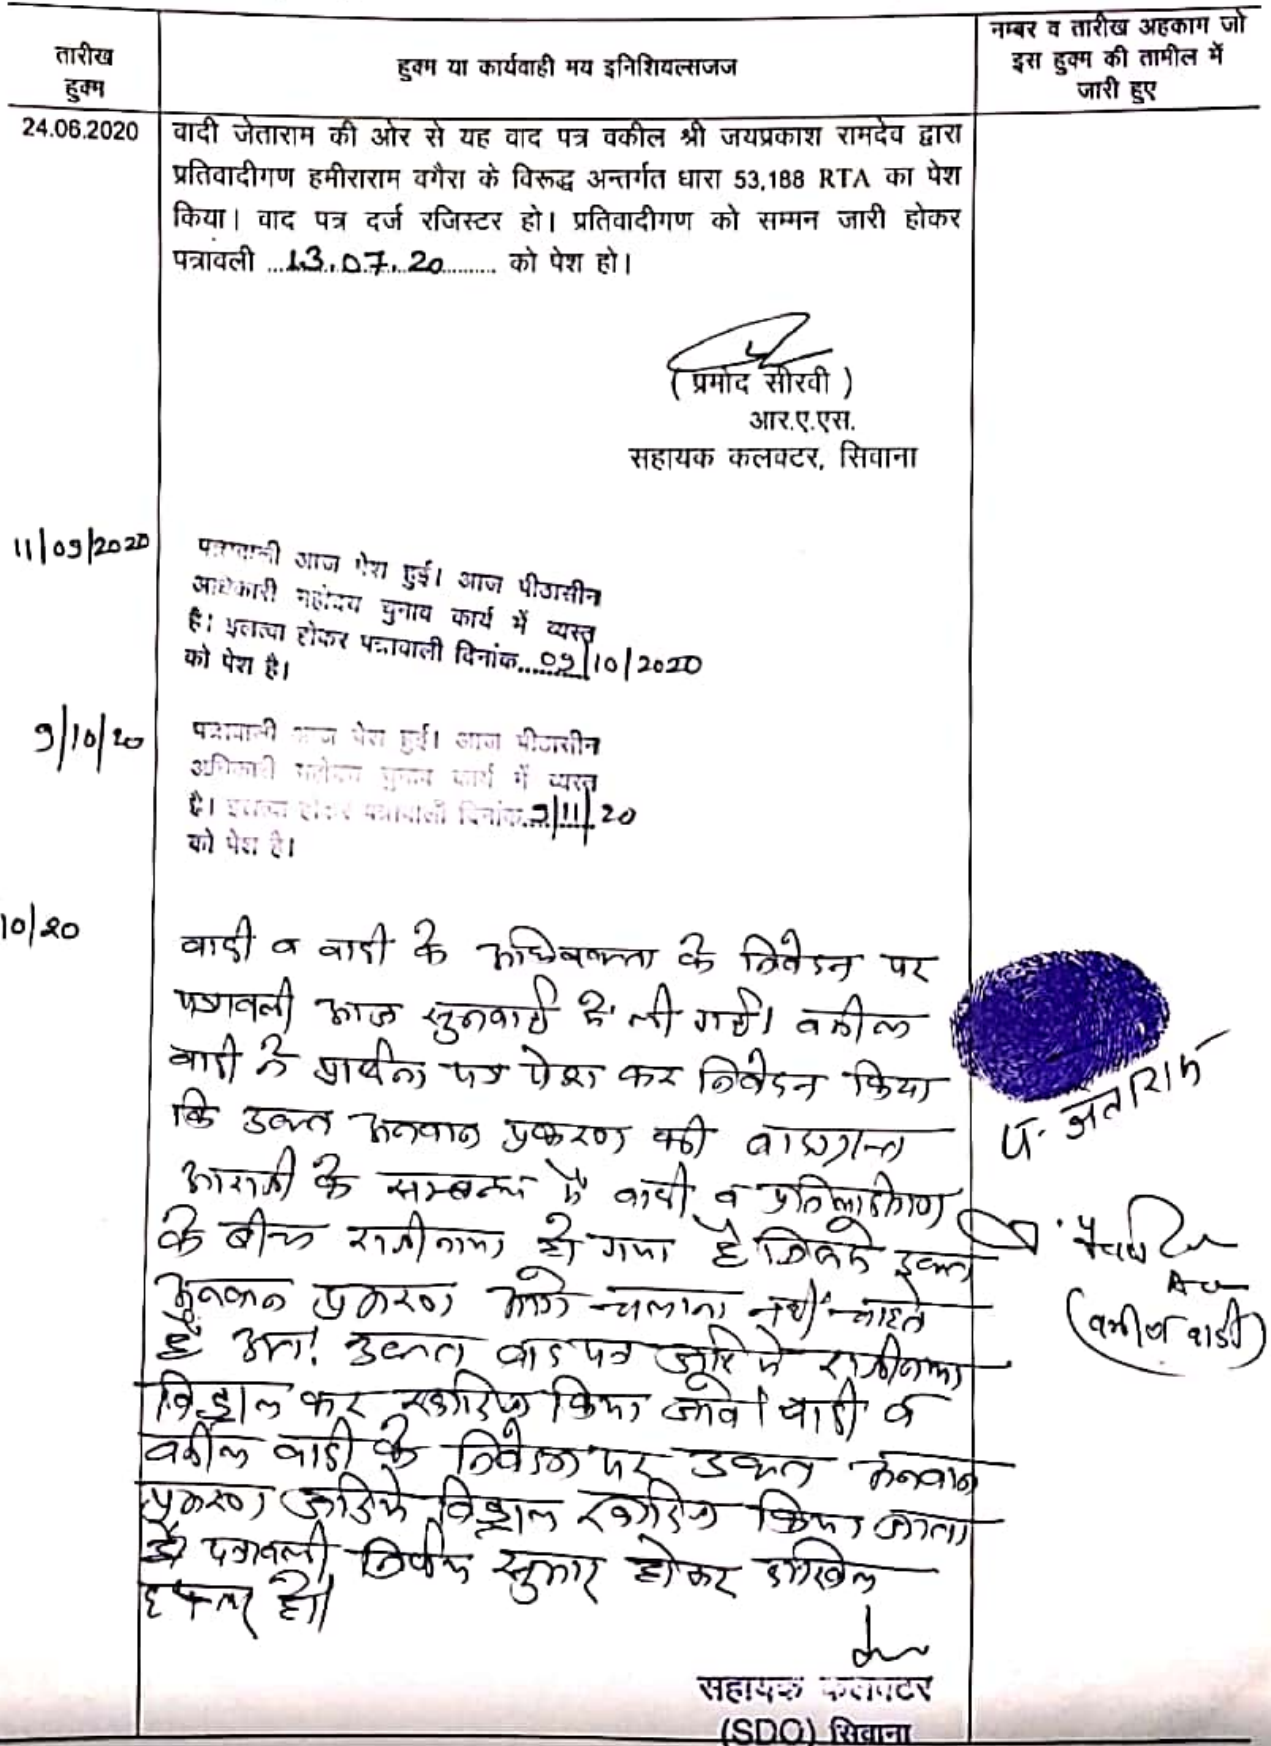 तारीख
हुक्म
हुक्म या कार्यवाही मय इनिशियल्सजज
नम्बर व तारीख अहकाम जो
इस हुक्म की तामील में
जारी हुए
24.06.2020
वादी जेताराम की ओर से यह वाद पत्र वकील श्री जयप्रकाश रामदेव द्वारा
प्रतिवादीगण हमीराराम वगैरा के विरूद्ध अन्तर्गत धारा 53,188 RTA का पेश
किया। वाद पत्र दर्ज रजिस्टर हो। प्रतिवादीगण को सम्मन जारी होकर
पत्रावली ...13.07.20.......... को पेश हो।
( प्रमोद सीरवी )
आर.ए.एस.
सहायक कलक्टर, सिवाना
11/09/2020
पत्रावली आज पेश हुई। आज पीठासीन
अधिकारी महोदय चुनाव कार्य में व्यस्त
है। इलत्वा होकर पत्रावली दिनांक...09/10/2020
को पेश है।
9/10/20
पत्रावली आज पेश हुई। आज पीठासीन
अधिकारी महोदय चुनाव कार्य में व्यस्त
है। इलत्वा होकर पत्रावली दिनांक...9/11/20
को पेश है।
10/20
वादी व वादी के अधिवक्ता के निवेदन पर
पत्रावली आज सुनवाई में ली गई। वकील
वादी ने प्रार्थना पत्र पेश कर निवेदन किया
कि उक्त अनवान प्रकरण की वादग्रस्त
आराजी के सम्बन्ध में वादी व प्रतिवादीगण
के बीच राजीनामा हो गया है जिससे उक्त
अनवान प्रकरण आगे चलाना नहीं चाहते
है अतः उक्त वाद पत्र जरिये राजीनामा
विड्राल कर खारिज किया जावे। वादी व
वकील वादी के निवेदन पर उक्त अनवान
प्रकरण जरिये विड्राल खारिज किया जाता
है पत्रावली निर्णय सुमार होकर दाखिल
दफ्तर हो।
जेताराम
(वकील वादी)
सहायक कलक्टर
(SDO) सिवाना